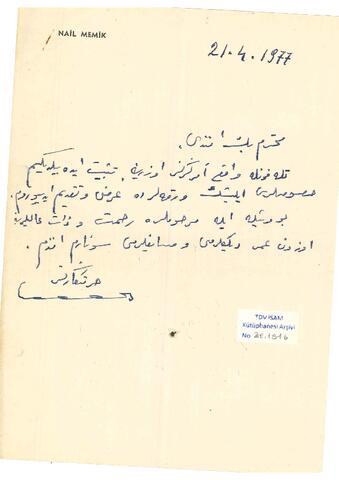 NAİL MEMİK
21.4.1977
محترم بك افندى،
تلفونله واقع امركز اوزرينه تثبيت ايده بيلديكم
خصوصلرى ايليشيك ورقه لرده عرض و تقديم ايدييورم.
بو وسيله ايله مرحوملره رحمت و ذات عاليلرينه
اوزون عمر ديلكلرمى و سايغيلرمى سونارم افندم.
TDV İSAM
Kütüphanesi Arşivi
No 2E.1516